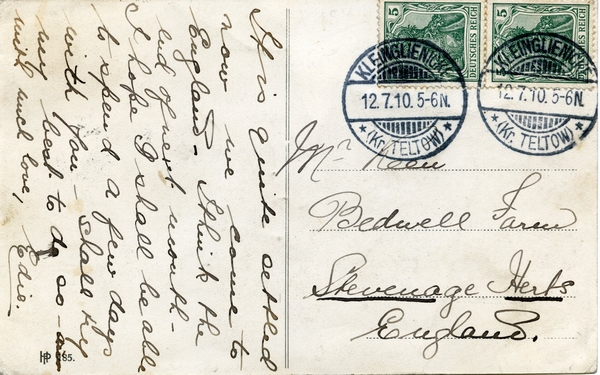 It is quite settled
now we come to
England - I think the
end of next month -
I hope I shall be able
to spend a few days
with you - shall try
my best to do so - 
with much love, Edie.
5 DEUTSCHES REICH
5 DEUTSCHES REICH
KLEINGLIENICKE
12.7.10. 5-6N.
* (Kr. TELTOW) *
KLEINGLIENICKE
12.7.10. 5-6N.
* (Kr. TELTOW) *
Mr Keen
Bedwell Farm
Stevenage Herts
England.
85.